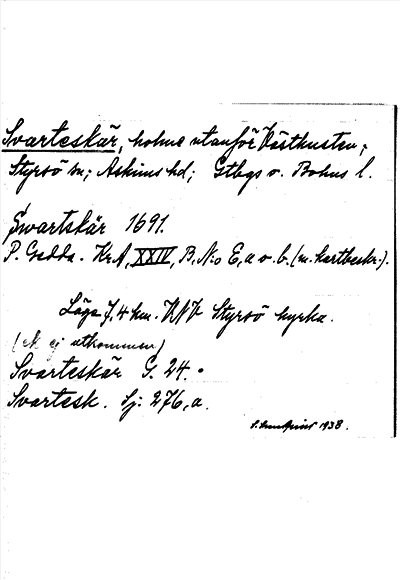 Svarteskär, holme utanför Västkusten;
Styrsö sn; Askims hd; Gtbgs o. Bohus l.
Swartskär 1691.
P. Gedda. Kr.A, XXIV, B. N:o E, a o. b. (m. kartbeskr.).
Läge 7,4 km. VNV Styrsö kyrka.
(ek ej utkommen)
Svarteskär G. 24.
Svartesk. Sj: 276, a.
1938.